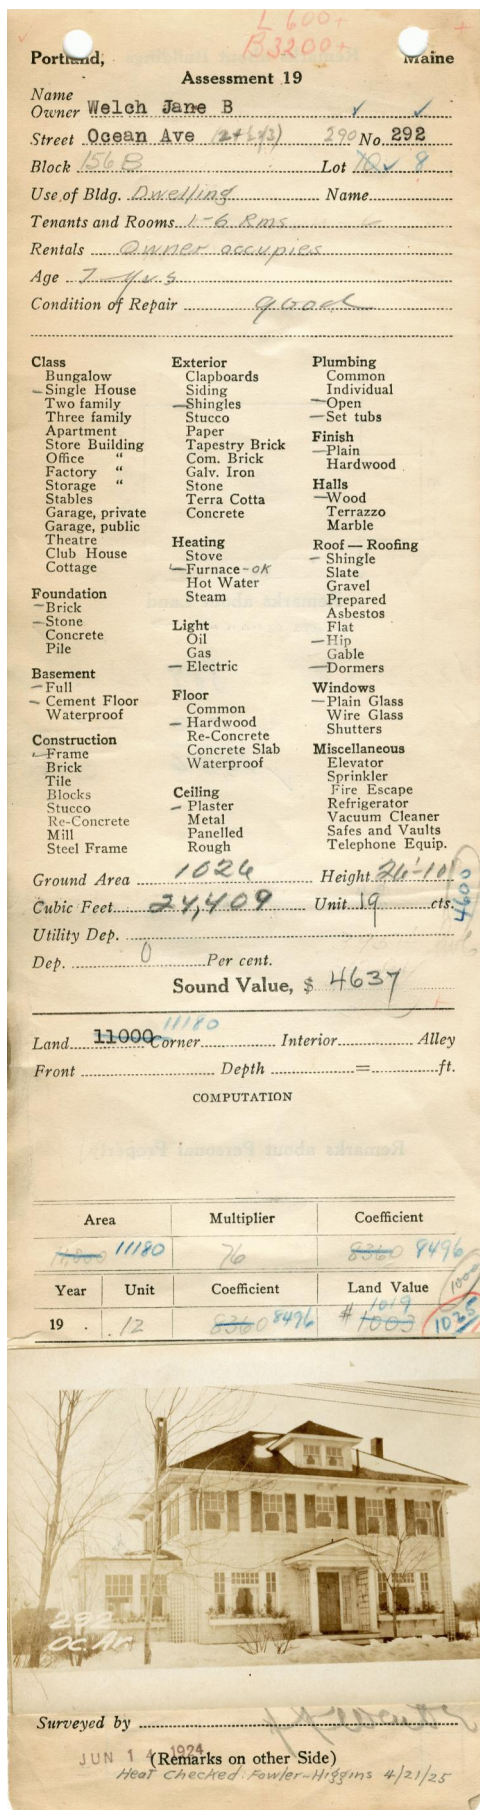 L 600+
B 3200+
Portland, Maine
Assessment 19
Name
Owner Welch Jane B
Street Ocean Ave 290 No. 292
Block 156 B Lot 8
Use of Bldg. Dwelling Name
Tenants and Rooms 1-6 Rms
Rentals Owner occupies
Age 7 yrs
Condition of Repair good
Class
Bungalow
Single House
Two family
Three family
Apartment
Store Building
Office "
Factory "
Storage "
Stables
Garage, private
Garage, public
Theatre
Club House
Cottage
Foundation
Brick
Stone
Concrete
Pile
Basement
Full
Cement Floor
Waterproof
Construction
Frame
Brick
Tile
Blocks
Stucco
Re-Concrete
Mill
Steel Frame
Exterior
Clapboards
Siding
Shingles
Stucco
Paper
Tapestry Brick
Com. Brick
Galv. Iron
Stone
Terra Cotta
Concrete
Heating
Stove
Furnace - OK
Hot Water
Steam
Light
Oil
Gas
Electric
Floor
Common
Hardwood
Re-Concrete
Concrete Slab
Waterproof
Ceiling
Plaster
Metal
Panelled
Rough
Plumbing
Common
Individual
Open
Set tubs
Finish
Plain
Hardwood
Halls
Wood
Terrazzo
Marble
Roof — Roofing
Shingle
Slate
Gravel
Prepared
Asbestos
Flat
Hip
Gable
Dormers
Windows
Plain Glass
Wire Glass
Shutters
Miscellaneous
Elevator
Sprinkler
Fire Escape
Refrigerator
Vacuum Cleaner
Safes and Vaults
Telephone Equip.
Ground Area 1026 Height
Cubic Feet 24,409 Unit 19 cts.
4600
Utility Dep.
Dep. 0 Per cent.
Sound Value, $ 4637
Land 11000 11180 Corner Interior Alley
Front Depth = ft.
COMPUTATION
Area Multiplier Coefficient
11,000 11180 76 8360 8496
Year Unit Coefficient Land Value
1000
19 .12 8360 8496 # 1003 1019 1025
292
Oc. Av
Surveyed by
JUN 14 1924
(Remarks on other Side)
Heat Checked. Fowler-Higgins 4/21/25